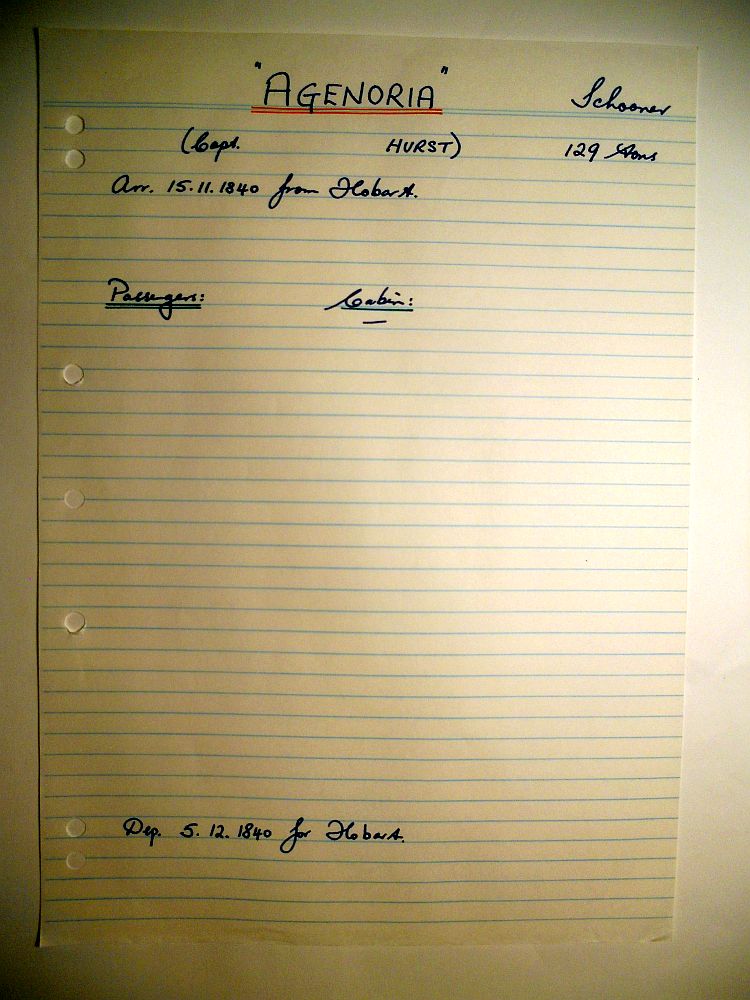 "AGENORIA" Schooner
(Capt. HURST) 129 tons
Arr. 15.11.1840 from Hobart.
Passengers: Cabin:
—
Dep. 5.12.1840 for Hobart.